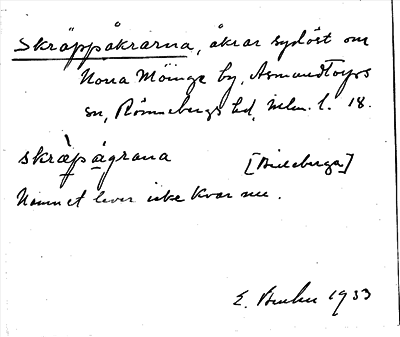 Skräppåkrarna, åkrar sydöst om
Norra Möinge by, Asmundtorps
sn, Rönnebergs hd, Mlm. l. 18.
skräpågrana [Billeberga]
Namnet lever icke kvar nu.
E. 1933